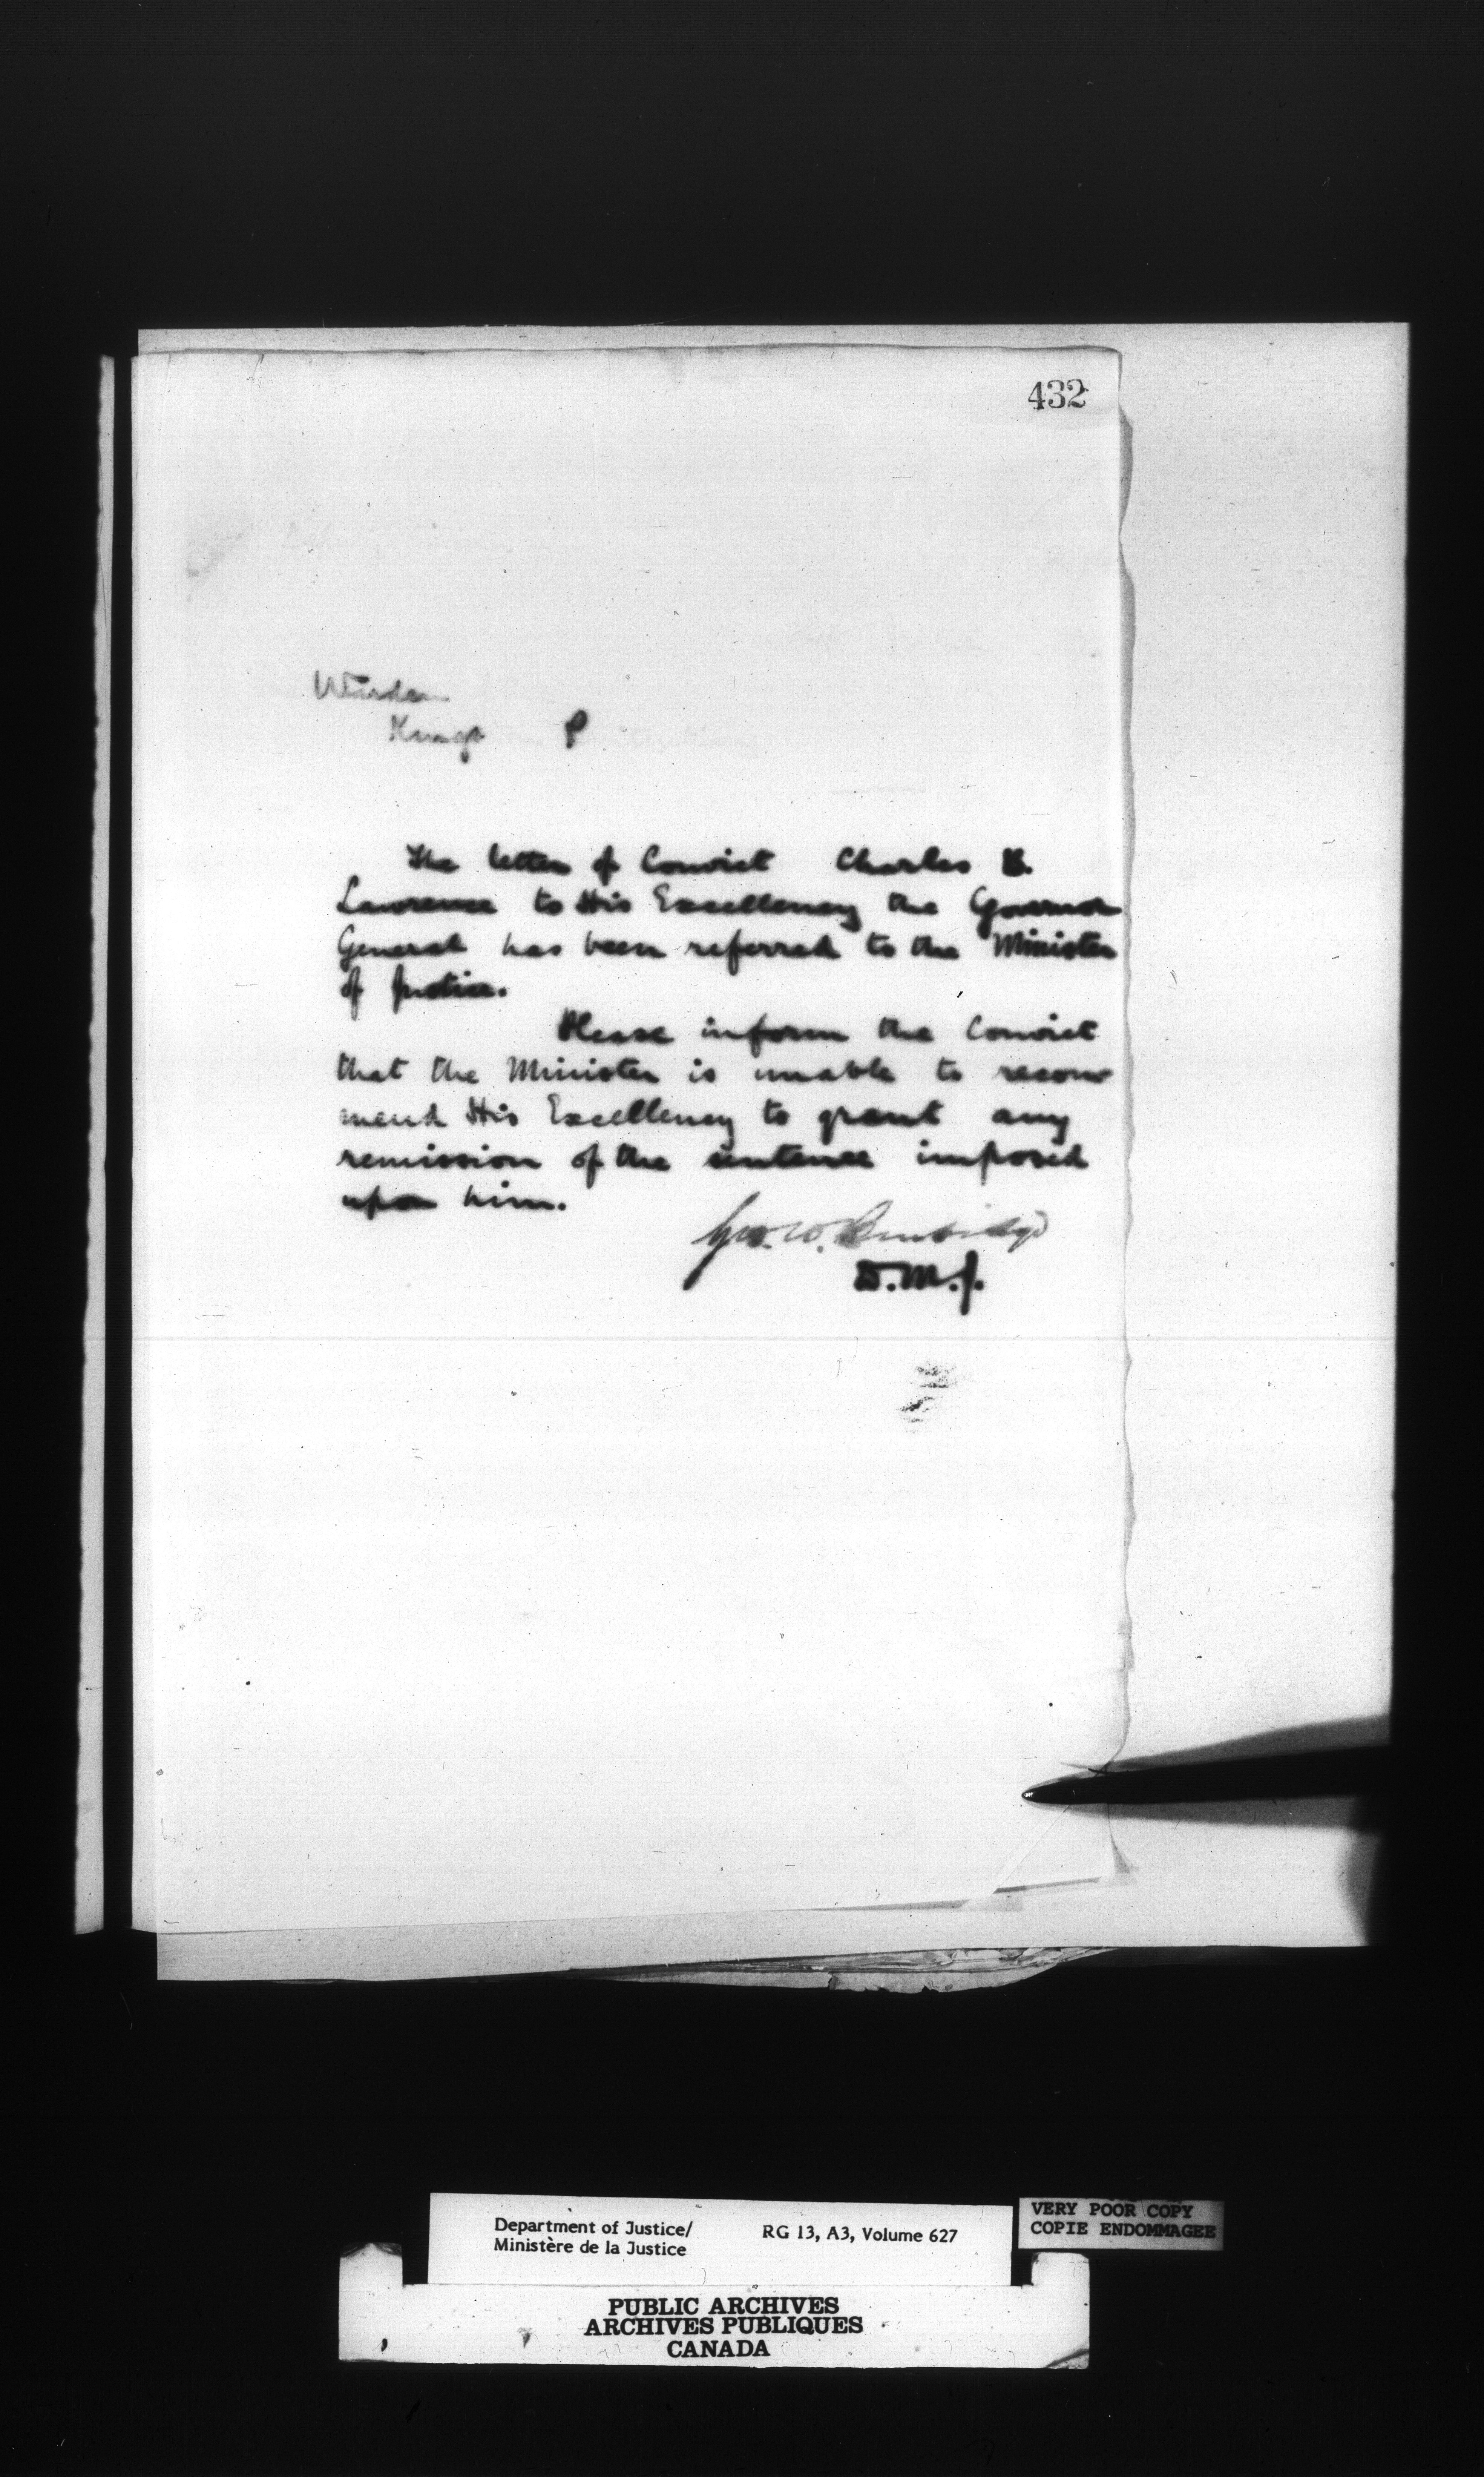 432
Warden
Kings P
The letter of Convict Charles
Lawrence to His Excellency the Governor
General has been referred to the Minister
of Justice.
Please inform the Convict
that the Minister is unable to recom
mend His Excellency to grant any
remission of the sentence imposed
upon him.
Geo. W. Burbidge
D.M.J.
Department of Justice/
Ministère de la Justice
RG 13, A3, Volume 627
VERY POOR COPY
COPIE ENDOMMAGEE
PUBLIC ARCHIVES
ARCHIVES PUBLIQUES
CANADA